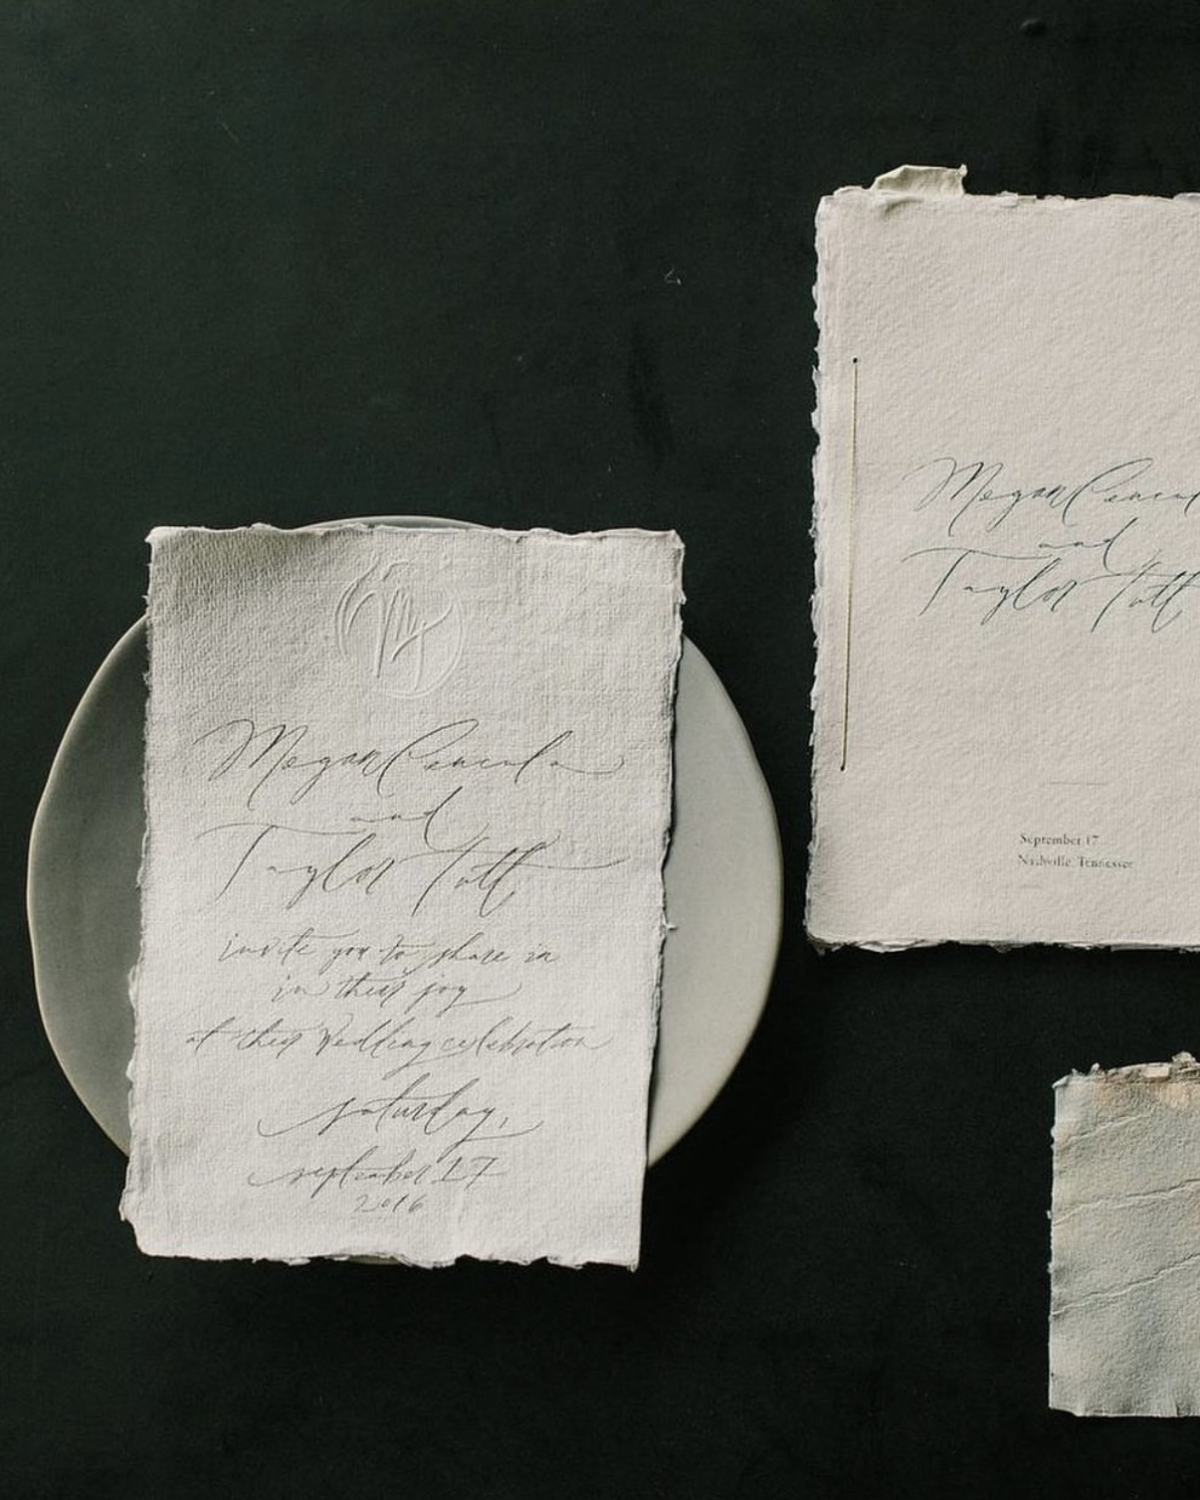 Megan
and
Taylor Tutt
invite you to share in
in their joy
at their wedding celebration
saturday,
september 17
2016
Megan
and
Taylor Tutt
September 17
Nashville, Tennessee